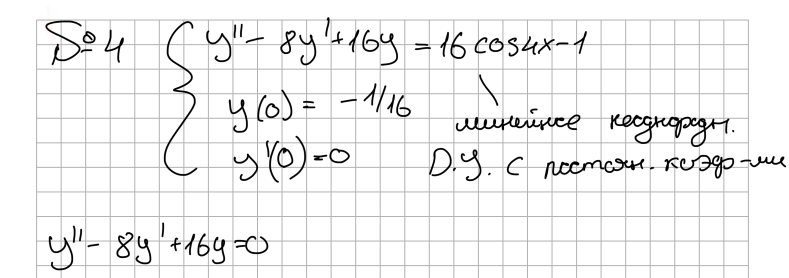 №4 { y'' - 8y' + 16y = 16 cos4x - 1
y(0) = -1/16
линейное неоднородн.
y'(0) = 0 D.У. с постоян. коэф-ми
y'' - 8y' + 16y = 0